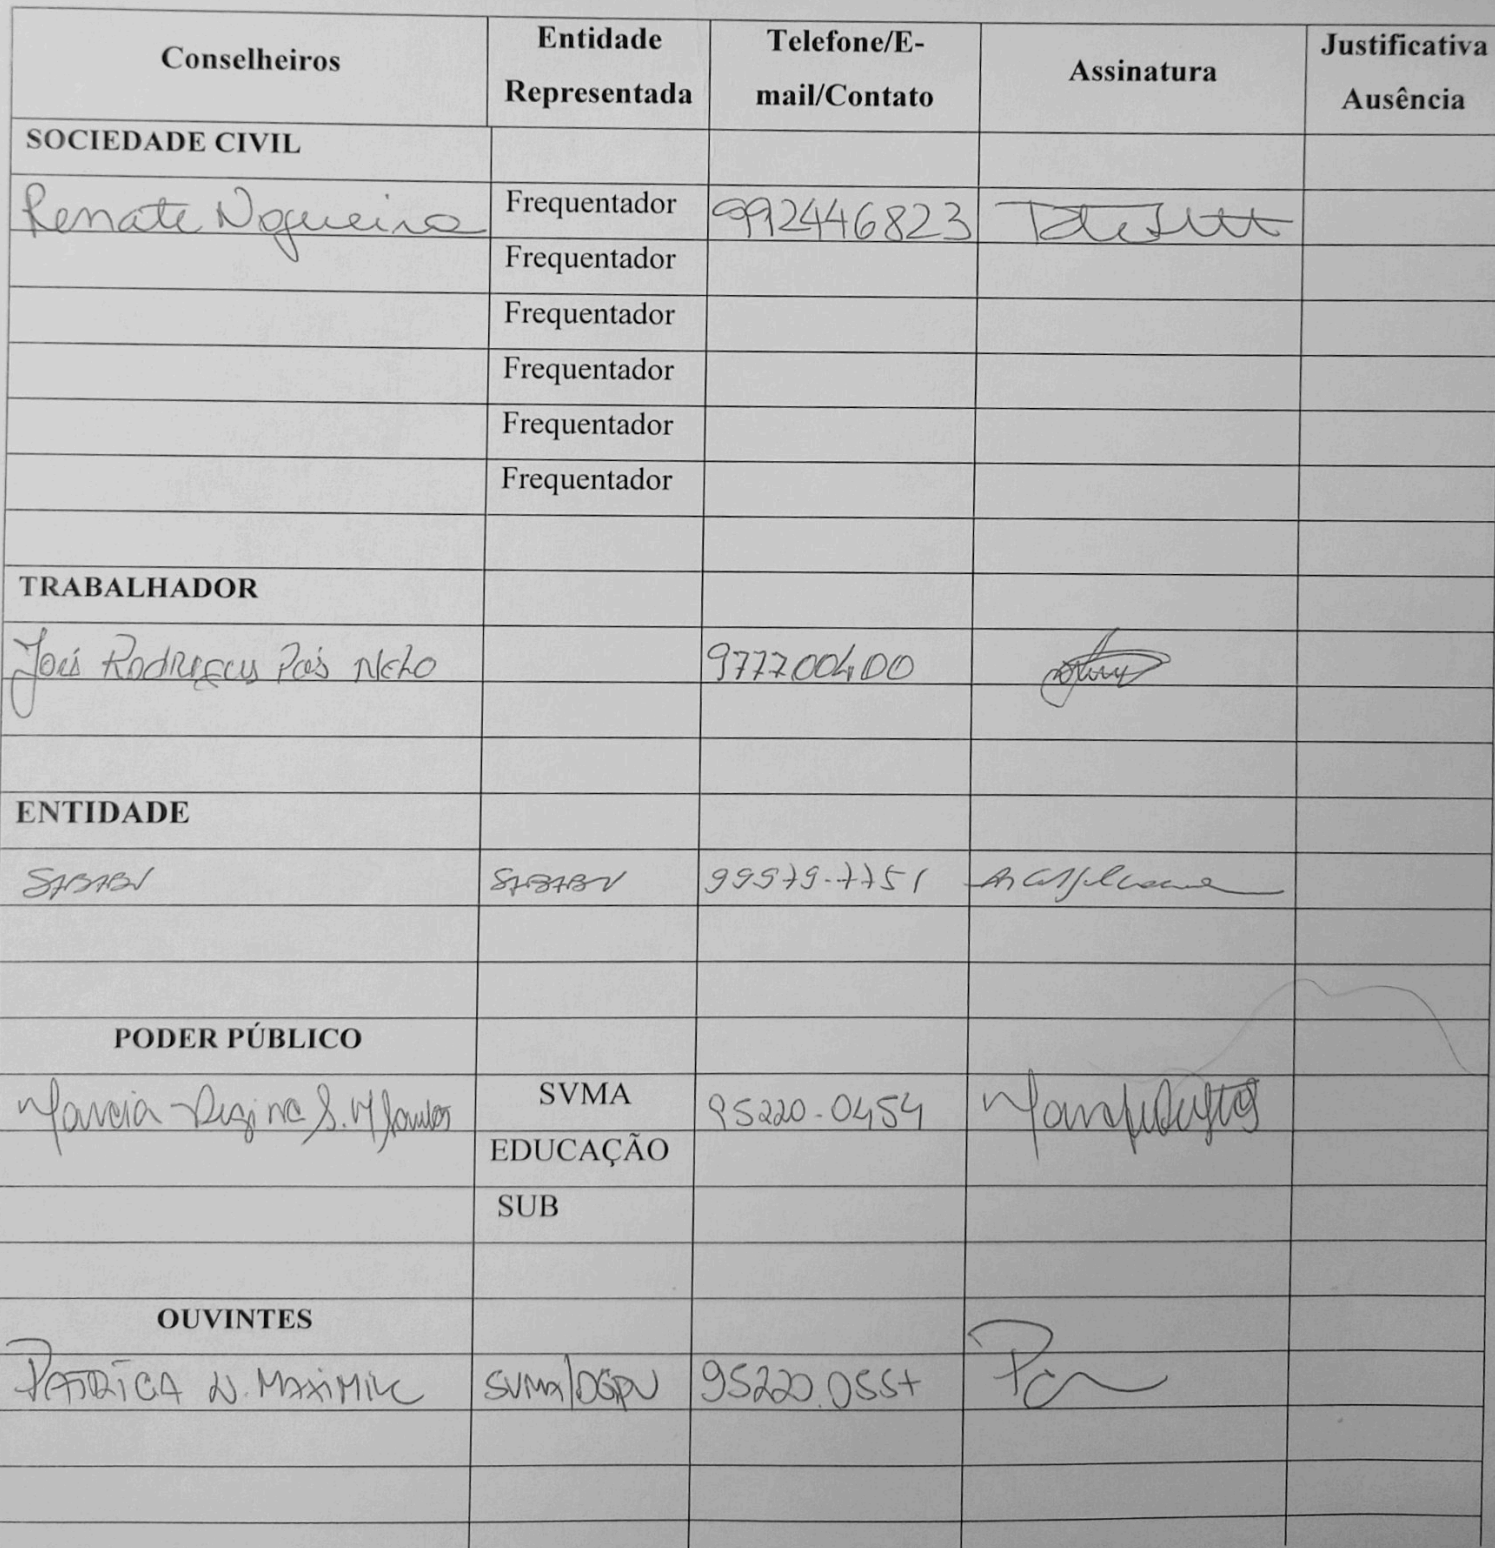 Conselheiros Entidade Representada Telefone/E-mail/Contato Assinatura Justificativa Ausência
SOCIEDADE CIVIL
Renate Nogueira Frequentador 992446823
Frequentador
Frequentador
Frequentador
Frequentador
Frequentador
TRABALHADOR
José Rodrigues Pais Neto 977700400
ENTIDADE
SABABV SABABV 99579-7751
PODER PÚBLICO
Marcia Regina S. SVMA 95220-0454
EDUCAÇÃO
SUB
OUVINTES
PATRÍCIA N. SVMA/DGPU 95220.0557